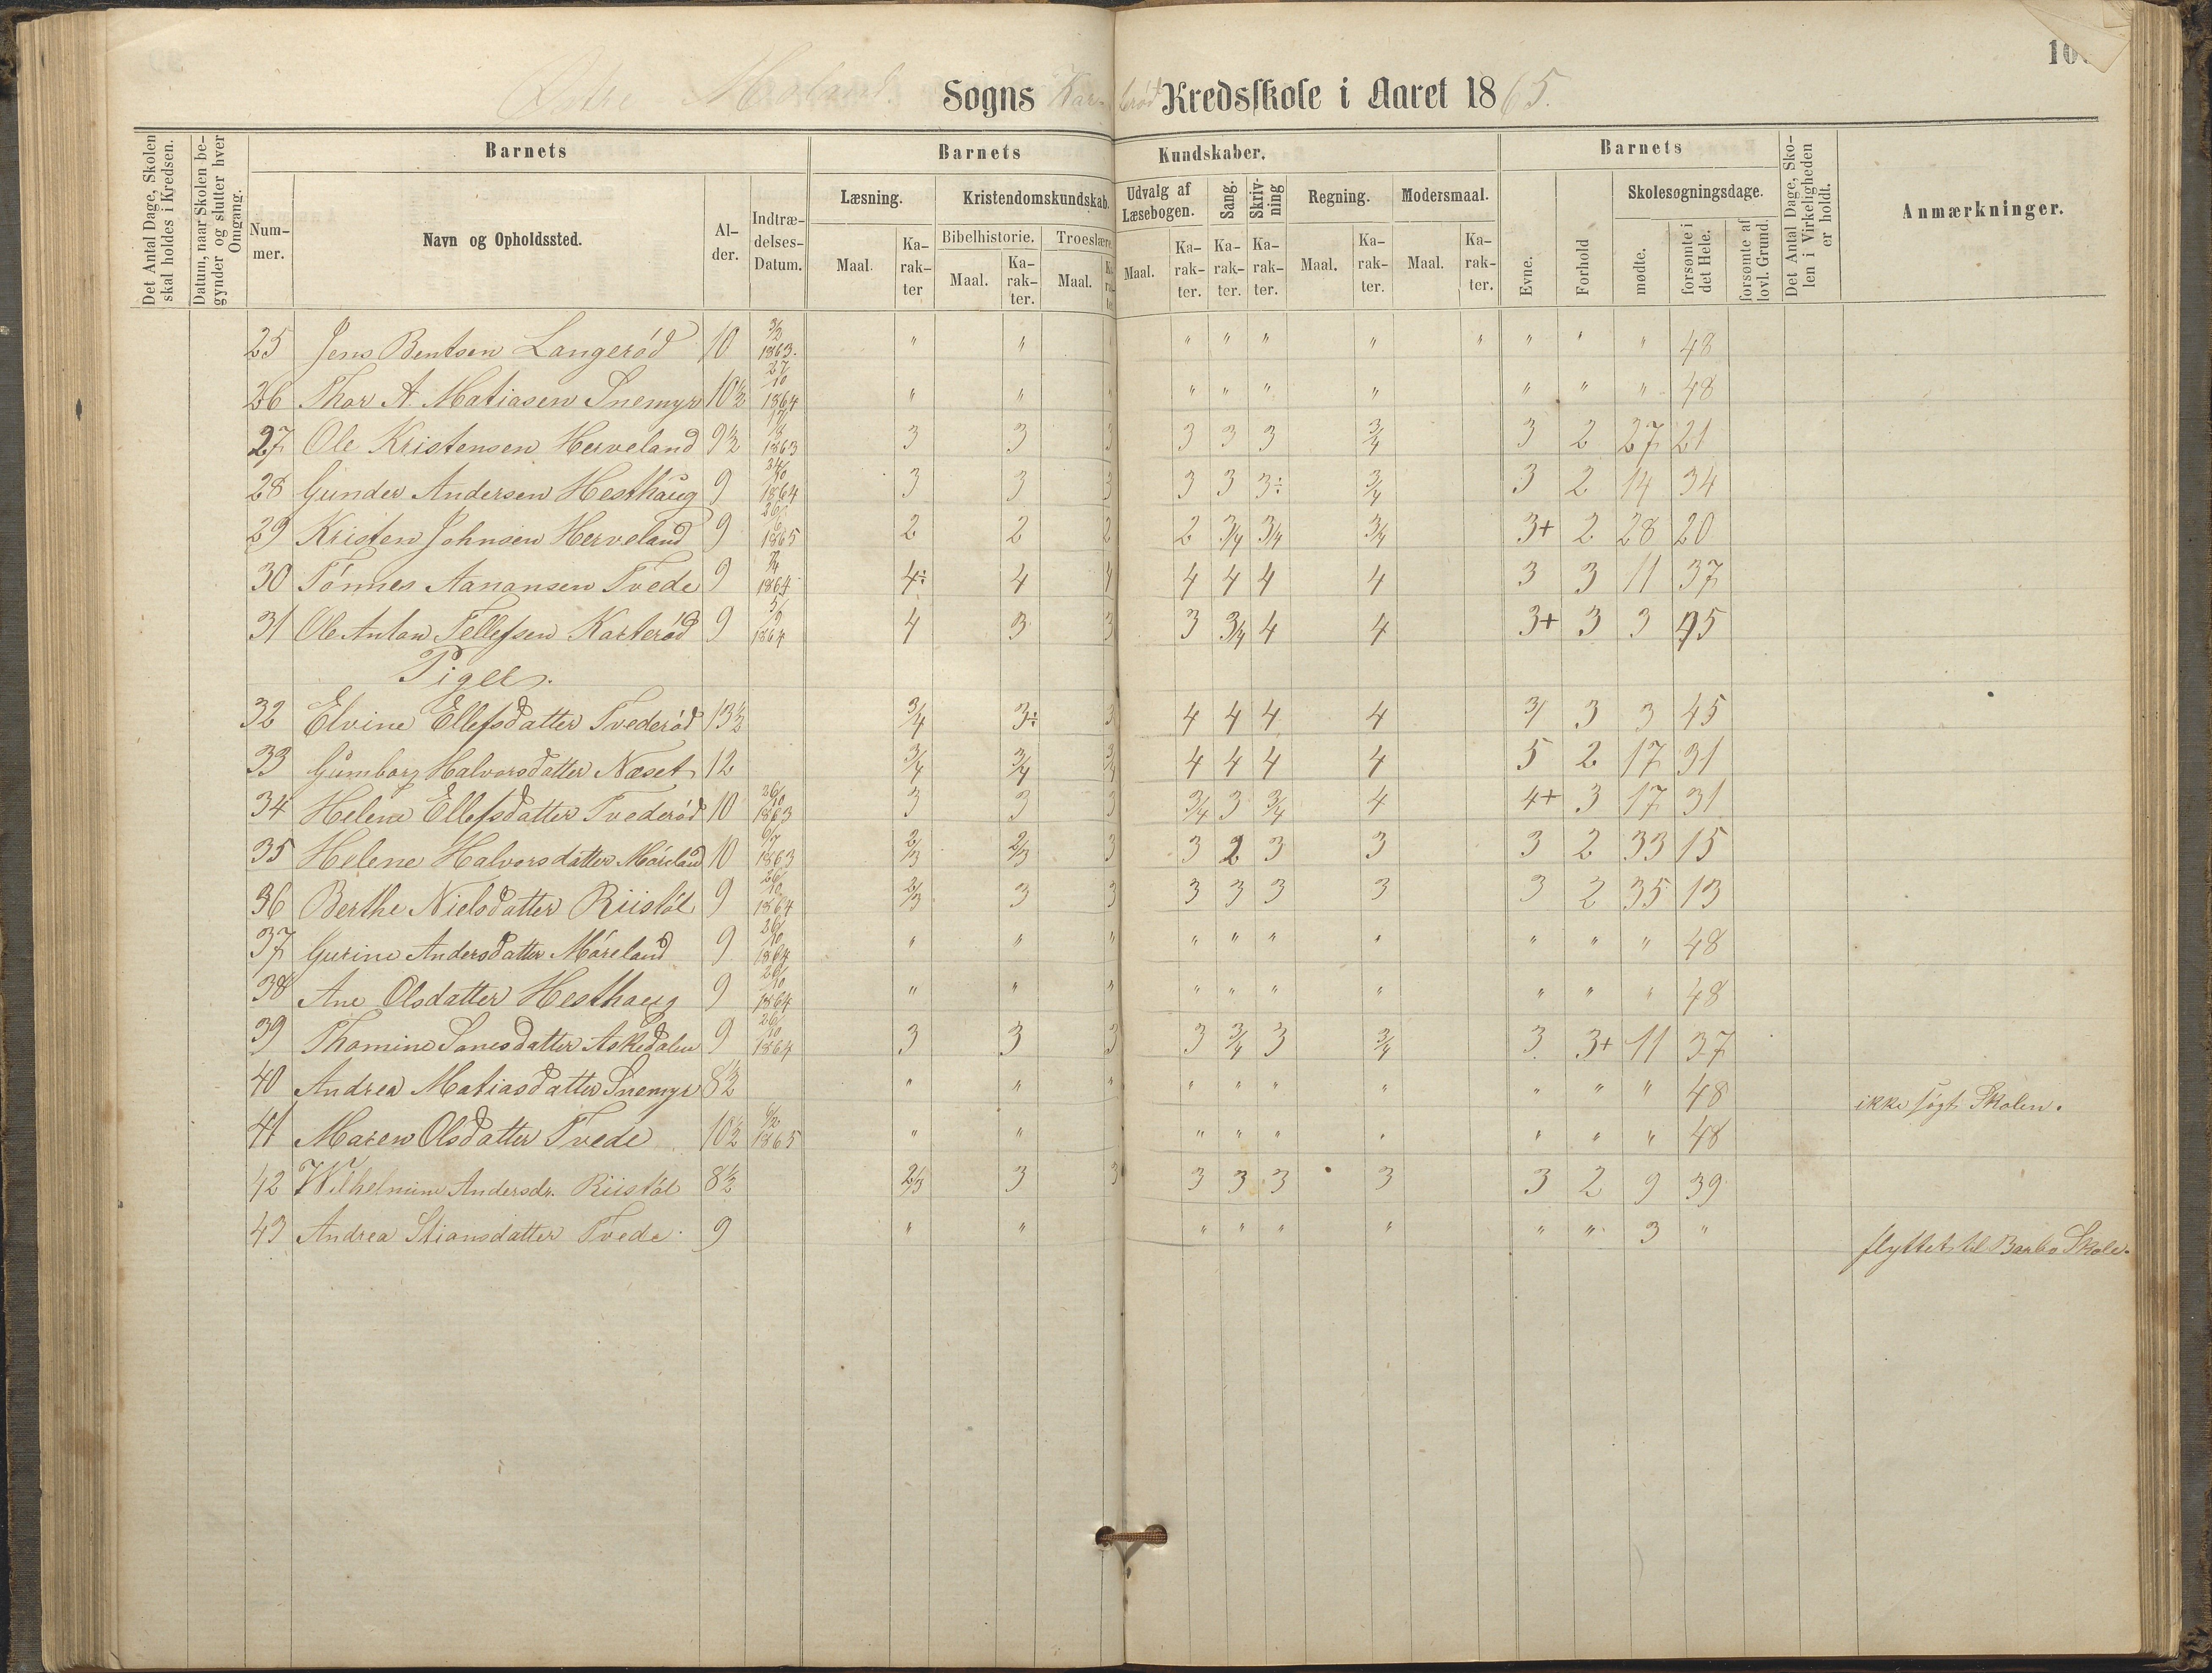 Østre Moland Sogns Kredsskole i Aaret 1865.
Det Antal Dage, Skolen skal holdes i Kredsen.
Datum, naar Skolen begynder og slutter hver Omgang.
Barnets
Nummer.
Navn og Opholdssted.
Alder.
Indtrædelses-Datum.
Barnets Kundskaber.
Læsning. Maal. Karakter
Kristendomskundskab.
Bibelhistorie. Maal. Karakter.
Troeslære. Maal.
Udvalg af Læsebogen. Maal. Karakter.
Sang. Karakter.
Skrivning Karakter.
Regning. Maal. Karakter.
Modersmaal. Maal. Karakter.
Barnets
Evne.
Forhold
Skolesøgningsdage.
mødte.
forsømte i det Hele.
forsømte af lovl. Grund.
Det Antal Dage, Skolen i Virkeligheden er holdt.
Anmærkninger.
25 Jens Bentsen Langerød 10 3/2 1863. " " " " " " " " " " 48
26 Thor A. Matiasen Snemyr 10½ 27/10 1864 " " " " " " " " " " 48
27 Ole Kristensen Herveland 9½ 1863 3 3 3 3 3 3 3/4 3 2 27 21
28 Gunder Andersen Hesthaug 9 1864 3 3 3 3 3 3÷ 3/4 3 2 14 34
29 Kristen Johnsen Herveland 9 26/6 1865 2 2 2 2 3/4 3/4 3/4 3+ 2 28 20
30 Tönnes Aanansen Tvede 9 1864 4÷ 4 4 4 4 4 4 3 3 11 37
31 Ole Anton Tellefsen Karterød 9 5/9 1864 4 3 3 3 3/4 4 4 3+ 3 3 45
Piger.
32 Elvine Ellefsdatter Tvederød 13½ 3/4 3÷ 3 4 4 4 4 3/ 3 3 45
33 Gumborg Halvorsdatter Næset 12 3/4 3/4 3/4 4 4 4 4 5 2 17 31
34 Helene Ellefsdatter Tvederød 10 26/10 1863 3 3 3 3/4 3 3/4 4 4+ 3 17 31
35 Helene Halvorsdatter Möreland 10 6/7 1863 2/3 2/3 3 3 2 3 3 3 2 33 15
36 Berthe Nielsdatter Riistöl 9 26/10 1864 2/3 3 3 3 3 3 3 3 2 35 13
37 Gurine Andersdatter Möreland 9 26/10 1864 " " " " " " " " " " 48
38 Ane Olsdatter Hesthaug 9 26/10 1864 " " " " " " " " " " 48
39 Thomine Sanesdatter Askedalen 9 26/10 1864 3 3 3 3 3/4 3 3/4 3 3+ 11 37
40 Andrea Matiasdatter Snemyr 8½ " " " " " " " " " " 48 ikke søgt Skolen.
41 Maren Olsdatter Tvede 10½ 6/2 1865 " " " " " " " " " 48
42 Wilhelmine Andersdr. Riistöl 8½ 2/3 3 3 3 3 3 3 3 2 9 39
43 Andrea Stiansdatter Tvede 9 " " " " " " " " 3 " flyttet til Barbo Skole.